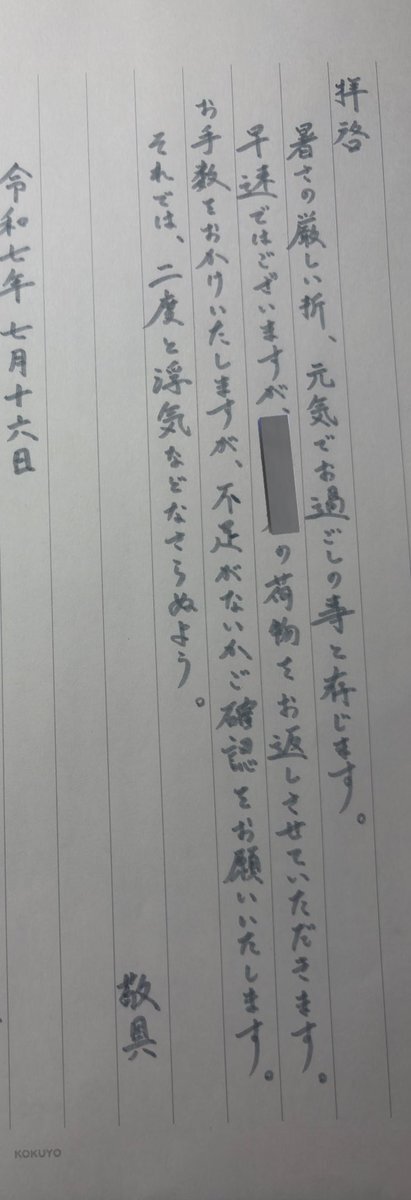 拝啓
暑さの厳しい折、元気でお過ごしの事と存じます。
早速ではございますが、の荷物をお返しさせていただきます。
お手数をおかけいたしますが、不足がないかご確認をお願いいたします。
それでは、二度と浮気などなさらぬよう。
敬具
令和七年七月十六日
KOKUYO